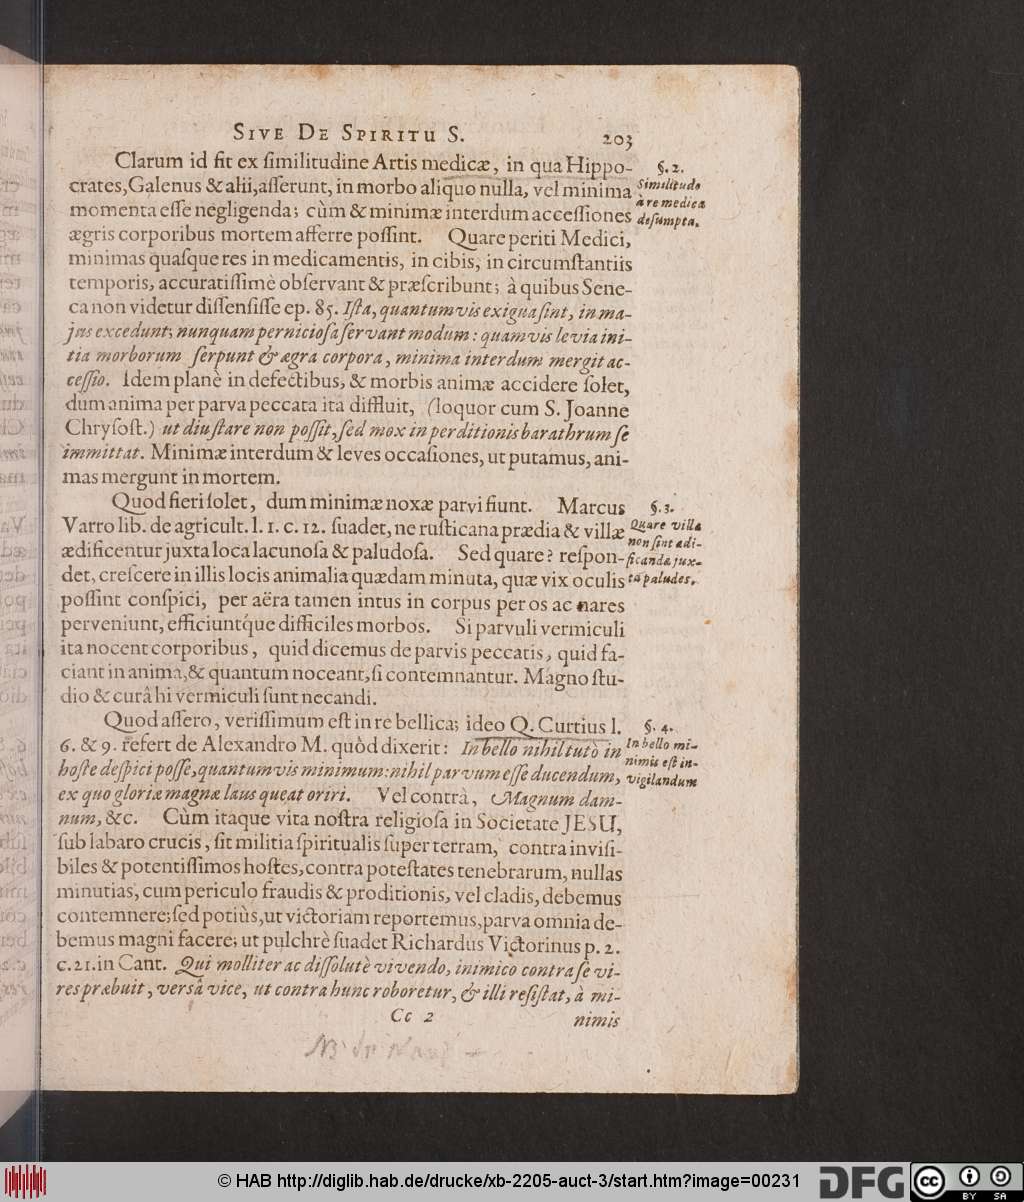 SIVE DE SPIRITU S. 203
Clarum id fit ex ſimilitudine Artis medicæ, in qua Hippo-
crates, Galenus & alii, aſſerunt, in morbo aliquo nulla, vel minima
momenta eſſe negligenda; cùm & minimæ interdum acceſſiones
ægris corporibus mortem afferre poſſint. Quare periti Medici,
minimas quaſque res in medicamentis, in cibis, in circumſtantiis
temporis, accuratiſſimè obſervant & præſcribunt; à quibus Sene-
ca non videtur diſſenſiſſe ep. 85. Iſta, quantumvis exigua ſint, in ma-
jus excedunt; nunquam pernicioſa ſervant modum: quamvis levia ini-
tia morborum ſerpunt & ægra corpora, minima interdum mergit ac-
ceſſio. Idem planè in defectibus, & morbis animæ accidere ſolet,
dum anima per parva peccata ita diffluit, (loquor cum S. Joanne
Chryſoſt.) ut diu ſtare non poſſit, ſed mox in perditionis barathrum ſe
immittat. Minimæ interdum & leves occaſiones, ut putamus, ani-
mas mergunt in mortem.
§. 2.
Similitudo
à re medica
deſumpta.
Quod fieri ſolet, dum minimæ noxæ parvi fiunt. Marcus
Varro lib. de agricult. l. 1. c. 12. ſuadet, ne ruſticana prædia & villæ
ædificentur juxta loca lacunoſa & paludoſa. Sed quare? reſpon-
det, creſcere in illis locis animalia quædam minuta, quæ vix oculis
poſſint conſpici, per aëra tamen intus in corpus per os ac nares
perveniunt, efficiuntq́ue difficiles morbos. Si parvuli vermiculi
ita nocent corporibus, quid dicemus de parvis peccatis, quid fa-
ciant in anima, & quantum noceant, ſi contemnantur. Magno ſtu-
dio & curâ hi vermiculi ſunt necandi.
§. 3.
Quare villæ
non ſint ædi-
ficandæ jux-
ta paludes.
Quod aſſero, veriſſimum eſt in re bellica; ideo Q. Curtius l.
6. & 9. refert de Alexandro M. quòd dixerit: In bello nihil tutò in
hoſte deſpici poſſe, quantumvis minimum: nihil parvum eſſe ducendum,
ex quo gloriæ magnæ laus queat oriri. Vel contrà, Magnum dam-
num, &c. Cùm itaque vita noſtra religioſa in Societate JESU,
ſub labaro crucis, ſit militia ſpiritualis ſuper terram, contra inviſi-
biles & potentiſſimos hoſtes, contra poteſtates tenebrarum, nullas
minutias, cum periculo fraudis & proditionis, vel cladis, debemus
contemnere; ſed potiùs, ut victoriam reportemus, parva omnia de-
bemus magni facere; ut pulchrè ſuadet Richardus Victorinus p. 2.
c. 21. in Cant. Qui molliter ac diſſolutè vivendo, inimico contra ſe vi-
res præbuit, versâ vice, ut contra hunc roboretur, & illi reſiſtat, à mi-
§. 4.
In bello mi-
nimis eſt in-
vigilandum
Cc 2 nimis
© HAB http://diglib.hab.de/drucke/xb-2205-auct-3/start.htm?image=00231
DFG
cc BY SA